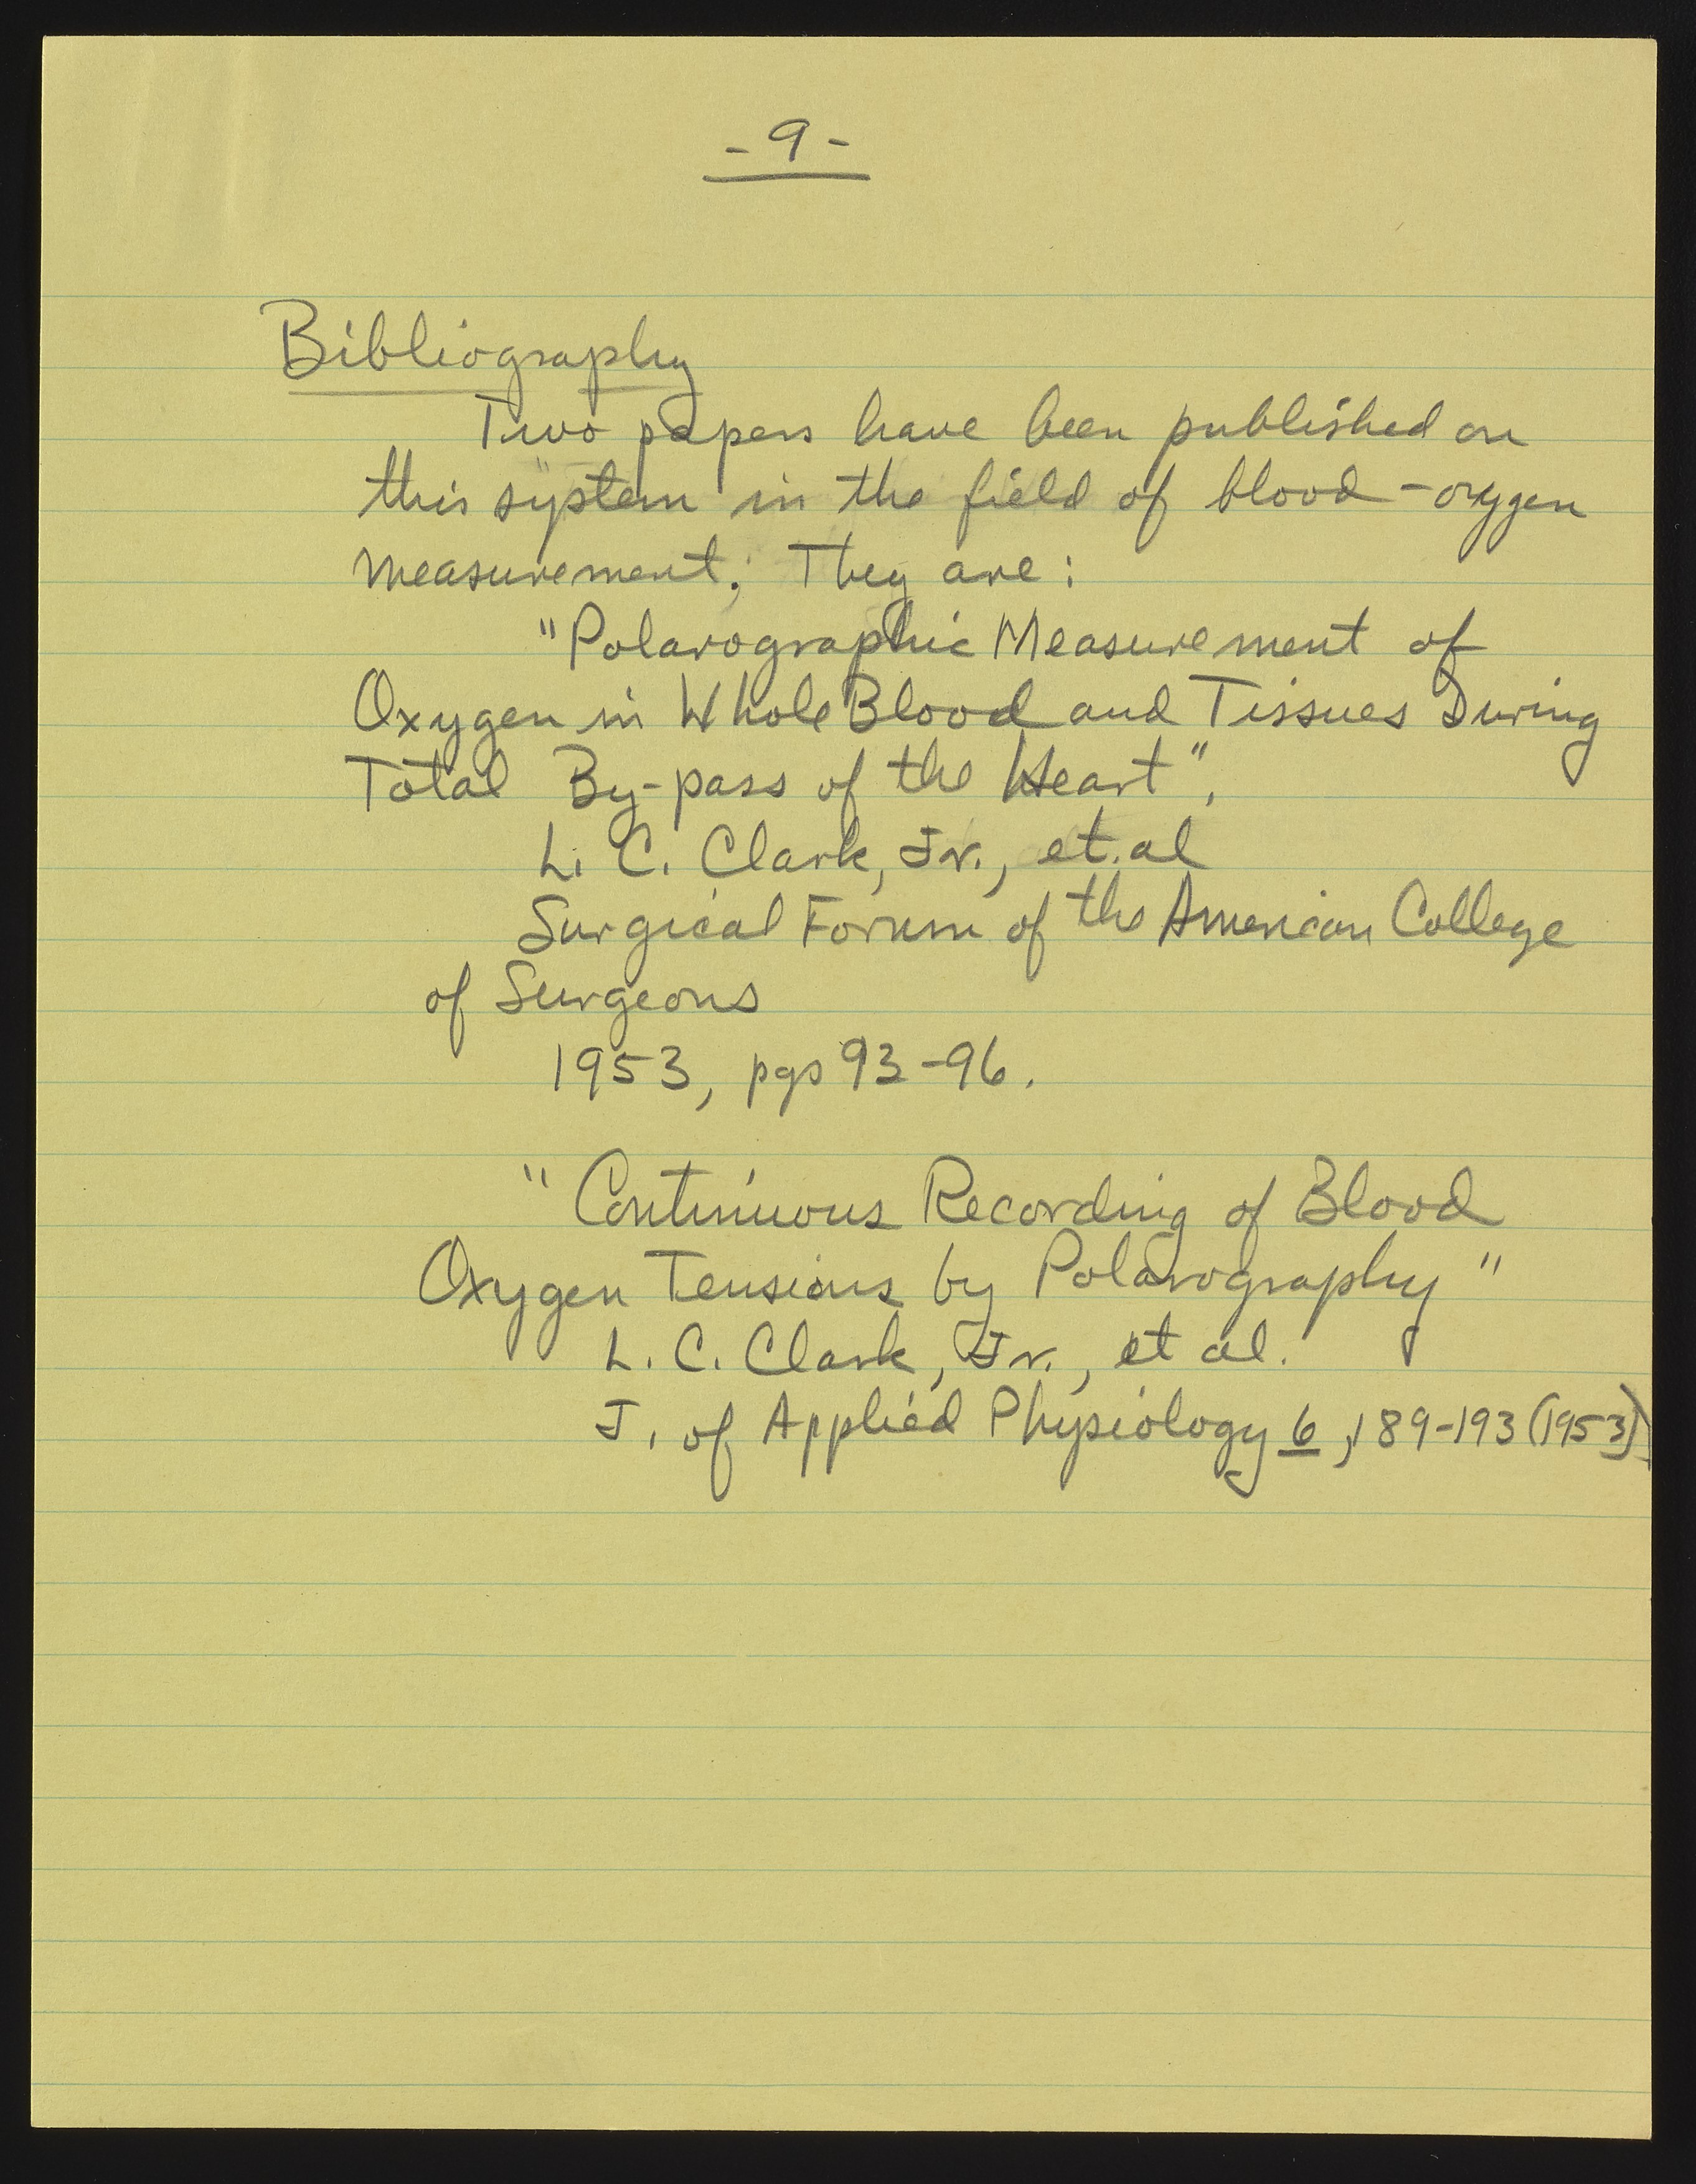 - 9 -
Bibliography
Two papers have been published on
this system in the field of blood-oxygen
measurement. They are:
"Polarographic Measurement of
Oxygen in Whole Blood and Tissues During
Total By-pass of the Heart",
L. C. Clark, Jr., et.al
Surgical Forum of the American College
of Surgeons
1953, pgs 93-96.
"Continuous Recording of Blood
Oxygen Tensions by Polarography"
L. C. Clark, Jr., et al.
J. of Applied Physiology 6, 189-193 (1953)